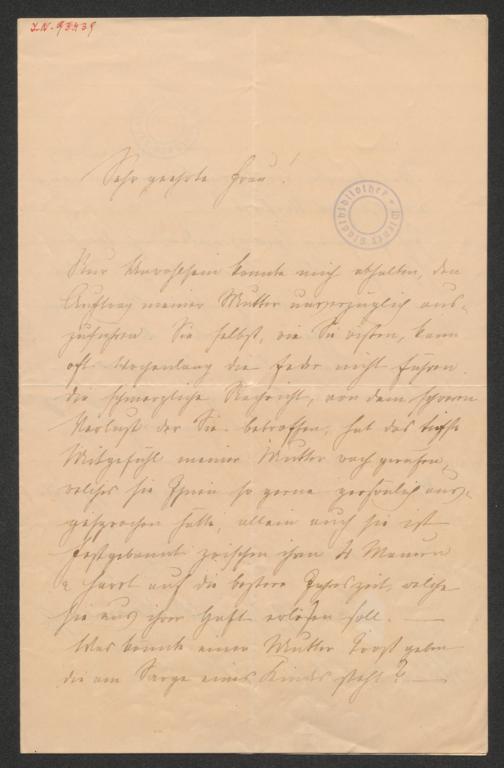 I.N. 93439
Sehr geehrte Frau!
Wiener Stadtbibliothek
Nur Unwohlsein konnte mich abhalten, den
Auftrag meiner Mutter unverzüglich aus-
zuführen. Sie selbst, wie Sie wissen, kann
oft Wochenlang die Feder nicht führen.
Die schmerzliche Nachricht, von dem schweren
Verlust der Sie betroffen, hat das tiefste
Mitgefühl meiner Mutter wach gerufen,
welches sie Ihnen so gerne persönlich aus-
gesprochen hätte, allein auch sie ist
festgebannt zwischen ihren 4 Mauern
u harrt auf die bessere Jahreszeit, welche
sie aus ihrer Haft erlösen soll. —
Was könnte einer Mutter Trost geben
die am Sarge eines Kindes steht? —